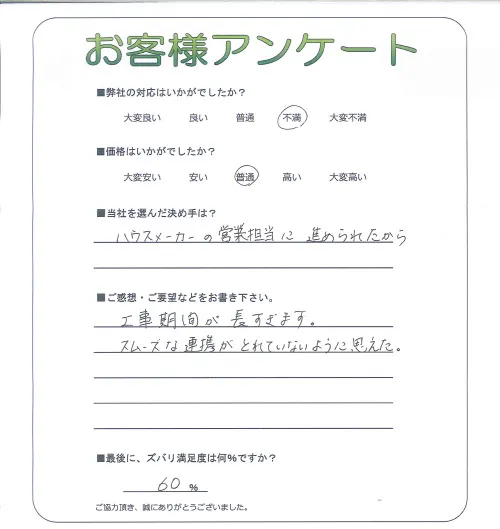 お客様アンケート
■弊社の対応はいかがでしたか？
大変良い 良い 普通 不満 大変不満
■価格はいかがでしたか？
大変安い 安い 普通 高い 大変高い
■当社を選んだ決め手は？
ハウスメーカーの営業担当に 進められたから
■ご感想・ご要望などをお書き下さい。
工事期間が 長すぎます。
スムーズな連携がとれていないように思えた。
■最後に、ズバリ満足度は何％ですか？
60 %
ご協力頂き、誠にありがとうございました。